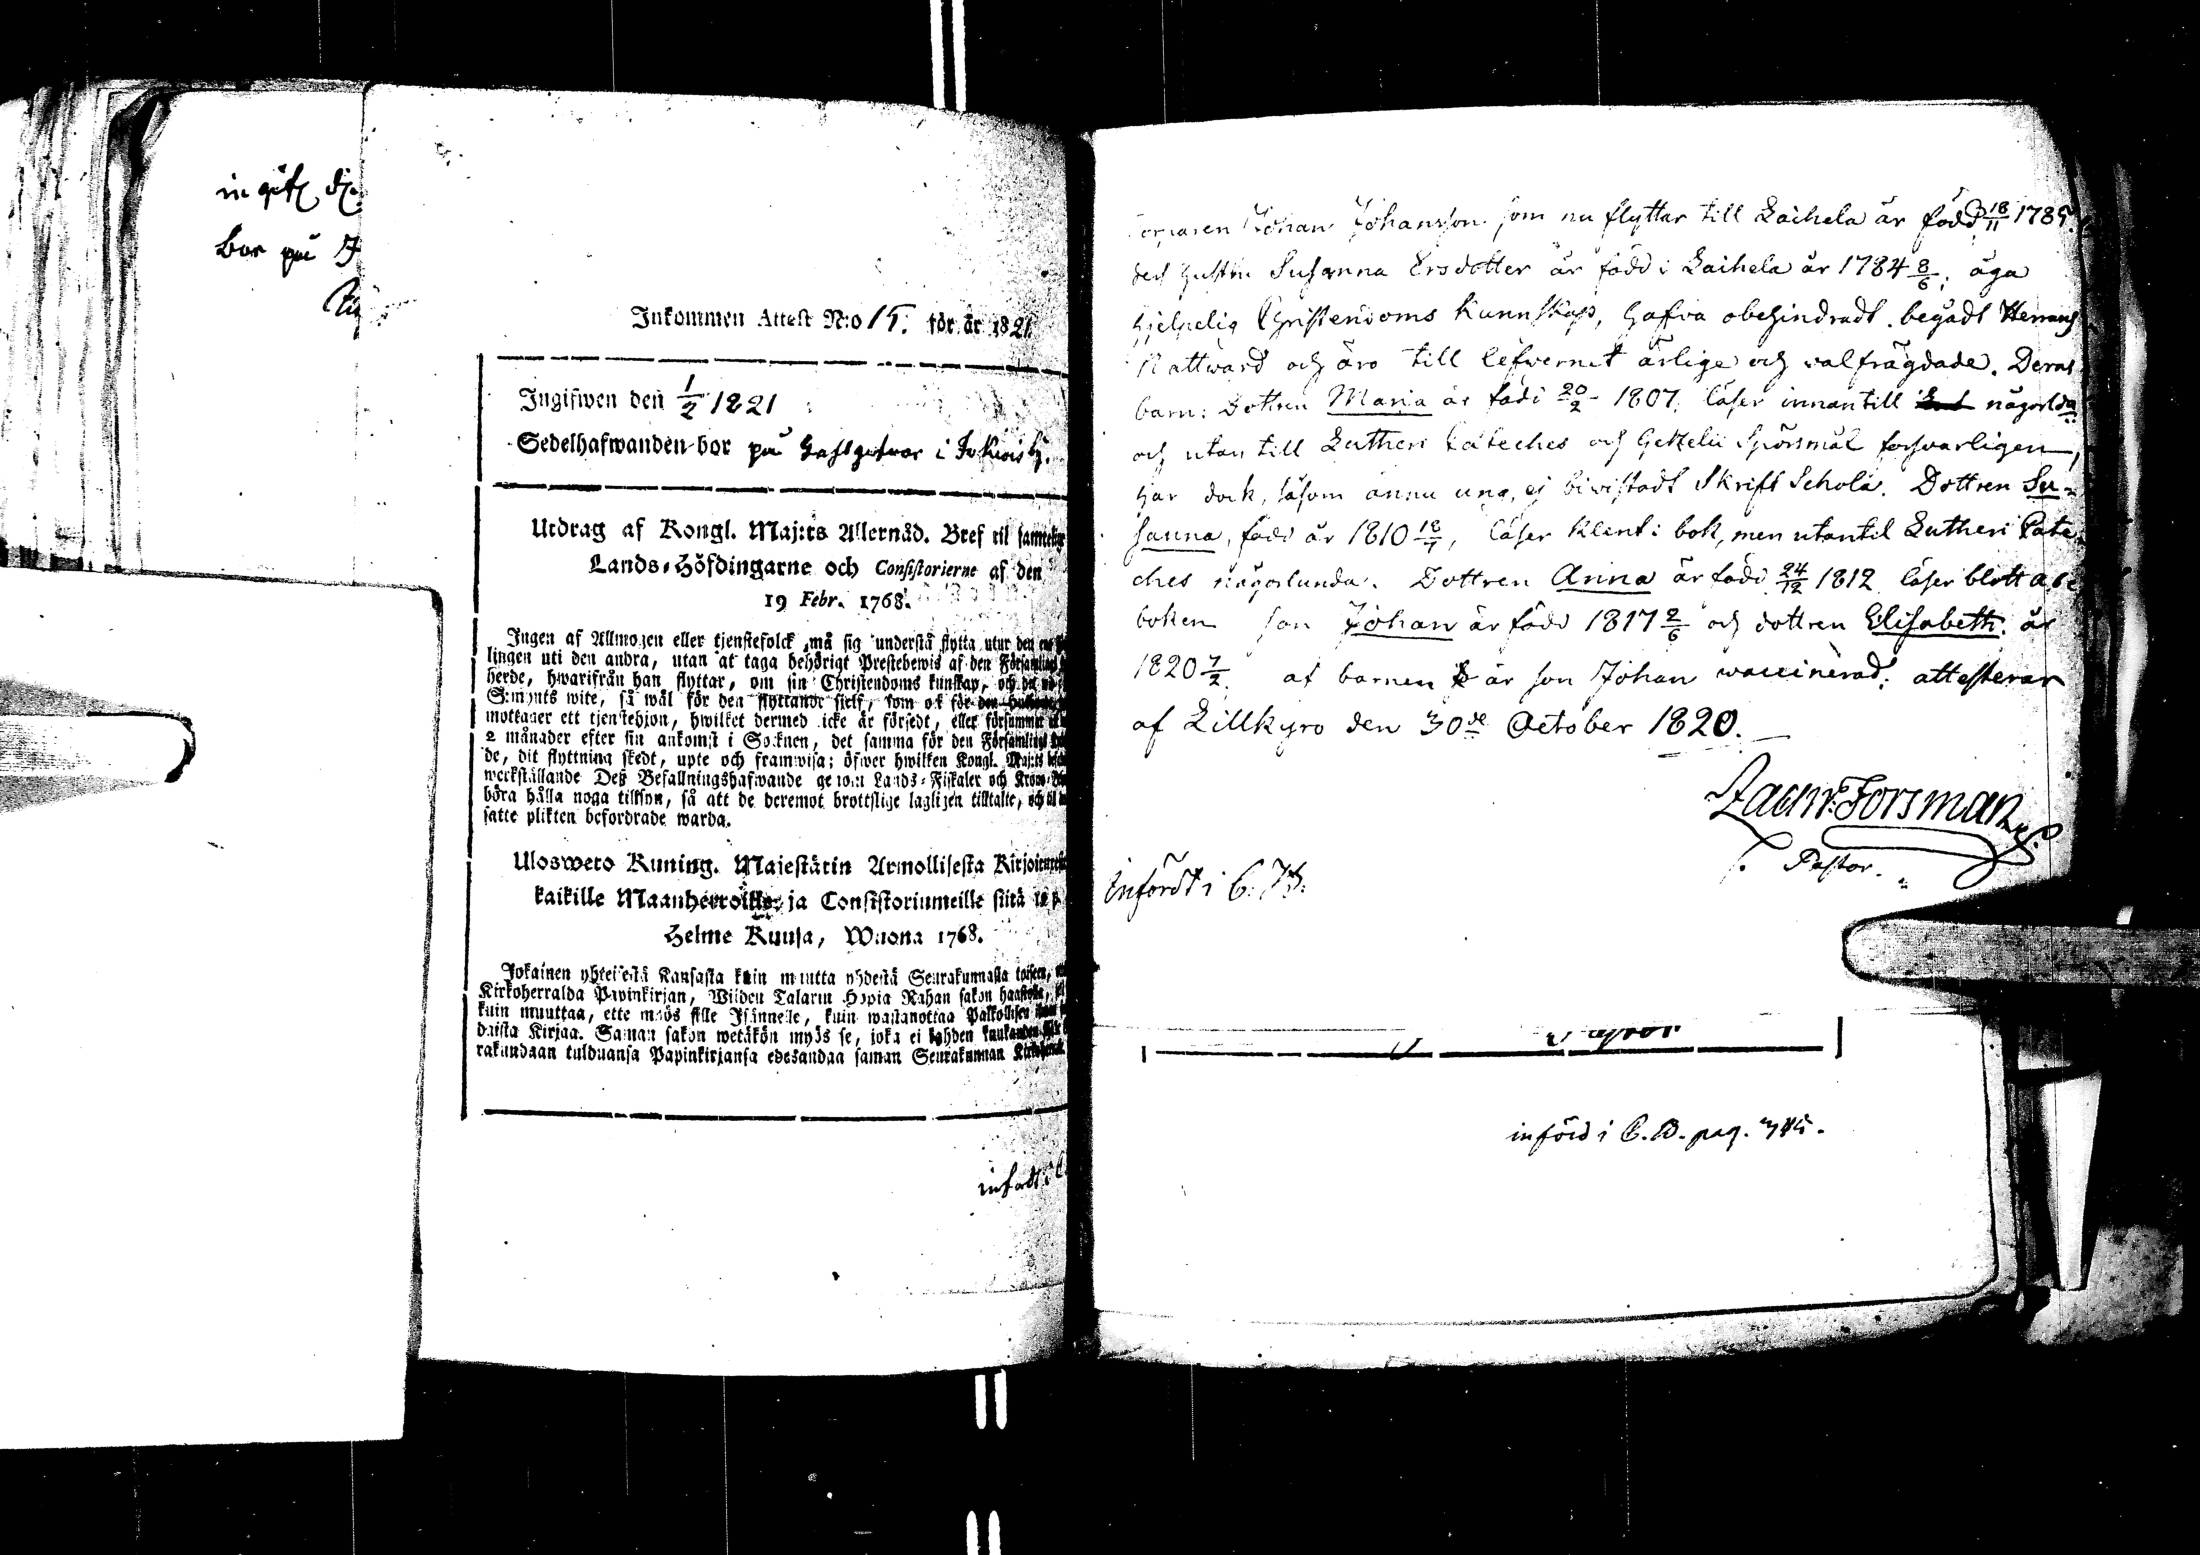 Bor på
Inkommen Attest N:o 15. för år 1821
Ingifwen den 1/2 1821
Sedelhafwanden bor på i
Utdrag af Kongl. Maj:ts Allernåd. Bref til samtelige
Lands-Höfdingarne och Consistorierne af den
19 Febr. 1768.
Ingen af Allmogen eller tjenstefolck må sig understå flytta utur den ena
lingen uti den andra, utan at taga behörigt Prestebewis af den Församlings
herde, hwarifrån han flyttar, om sin Christendoms kunskap, och
S:mynts wite, så wäl för den flyttande sjelf, som ock för den
mottager ett tjenstehjon, hwilket dermed icke är försedt, eller försummar
2 månader efter sin ankomst i Socknen, det samma för den Församlings
de, dit flyttning skedt, upte och framwisa; öfwer hwilken Kongl. Maj:ts
werkställande Deß Befallningshafwande genom Lands-Fiskaler och Krono-
böra hålla noga tillsyn, så att de deremot brottslige lagligen tilltalte, och til
satte plikten befordrade warda.
Ulosweto Kuning. Majestätin Armollisesta Kirjoituxesta
kaikille Maanherroille ja Consistoriumeille siitä 19 p.
Helme Kuusa, Wuona 1768.
Jokainen yhteisestä Kansasta kuin muutta yhdestä Seurakunnasta toiseen,
Kirkoherralda Papinkirjan, Wiiden Talarin Hopia Rahan sakon haastolla,
kuin muuttaa, ette myös sille Isännelle, kuin wastanottaa Palkollisen ilman
daista Kirjaa. Saman sakon wetäkön myös se, joka ei kahden kuukauden
rakundaan tulduansa Papinkirjansa edesandaa saman Seurakunnan Kirkoherralle
infördt i
Johan Johansson som nu flyttar till Laihela är född 18/11 1785.
des hustru Susanna Ersdotter är född i Laihela år 1784 8/6; äga
hjelpelig Christendoms Kunnskap, hafva obehindradt begådt Herrans
Nattward och äro till lefwernet ärlige och wälfrägdade. Deras
barn: Dottren Maria är född 20/2 1807, läser innantill någorlda
och utan till Lutheri Cateches och Gezelii Spörsmål forsvarligen,
har dock, såsom ännu ung, ej biwistadt Skrift Schola. Dottren Su-
sanna, född år 1810 18/7, läser klent i bok, men utantil Lutheri Cate-
ches någorlunda. Dottren Anna är född 24/12 1812 läser blott a.b.c
boken son Johan är född 1817 2/6 och dottren Elisabeth är
1820 7/2. af barnen är son Johan waccinerad; attesterar
af Lillkyro den 30de October 1820.
Zachr. Forsman
Pastor.
Infördt i C. B.
införd i C. B. pag.